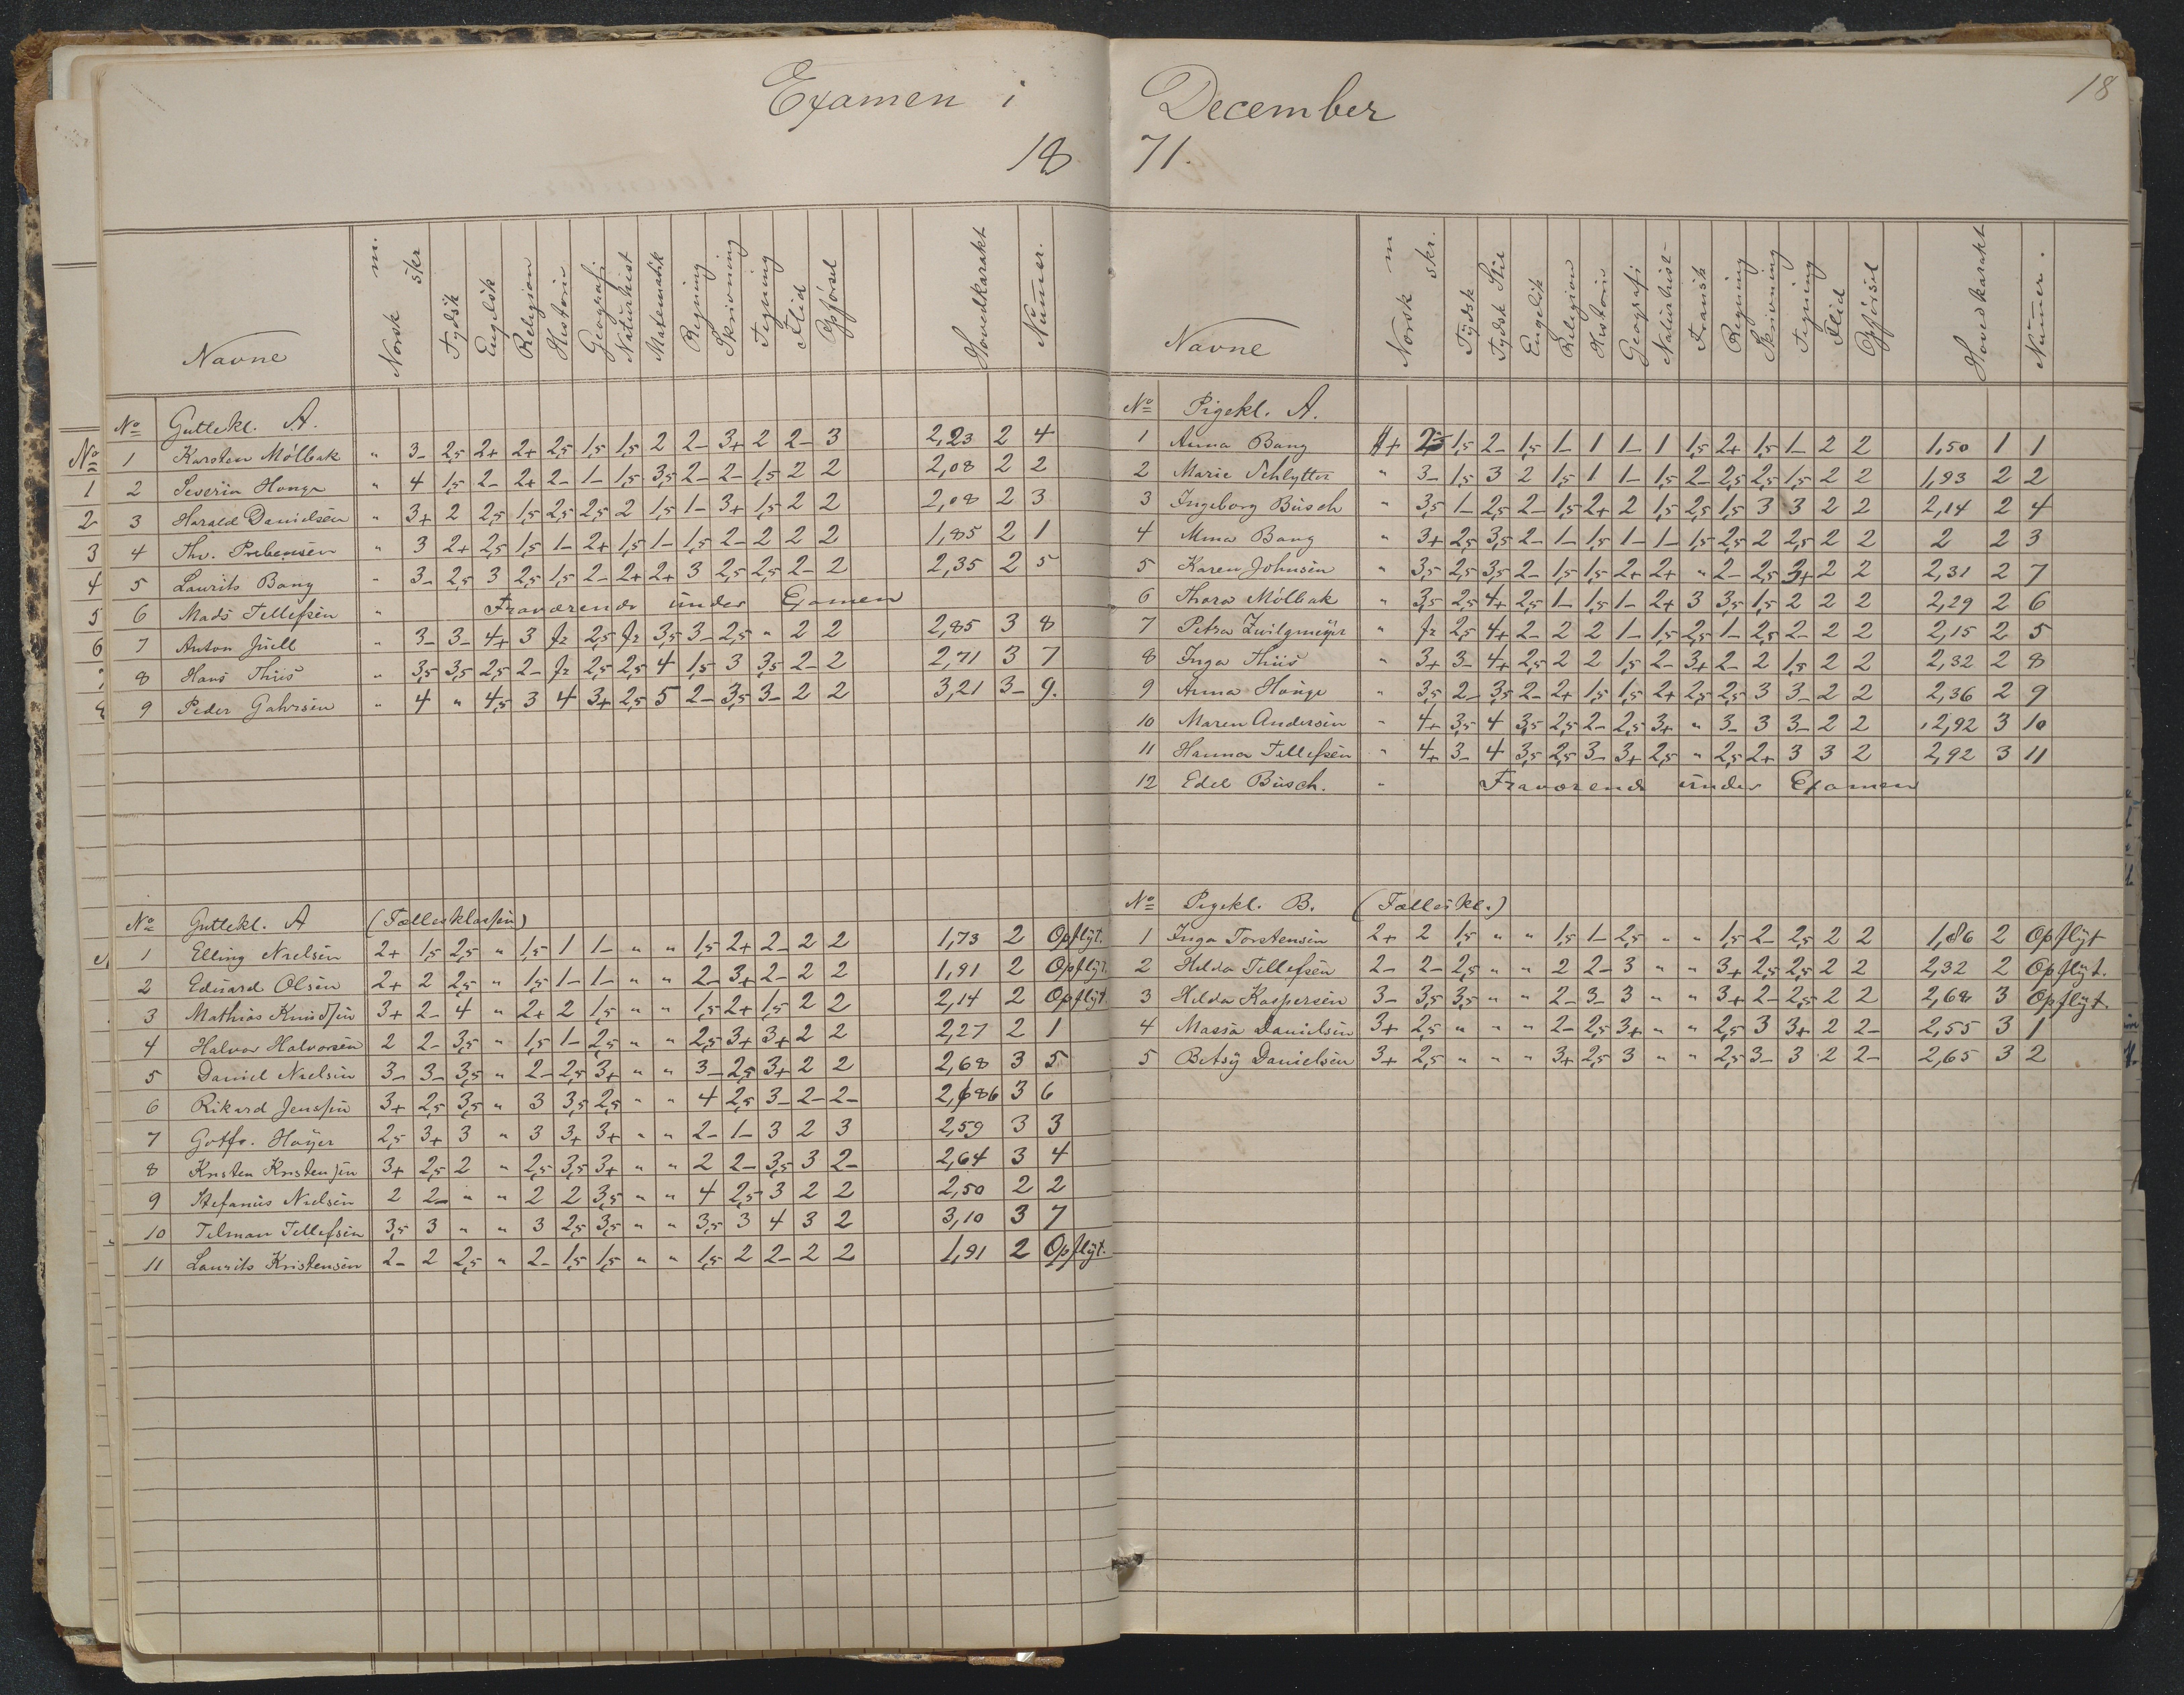 Examen i December
18
18 71.
Navne Norsk m. skr Tydsk Engelsk Religion Historie Geografi Naturhist Matematik Regning Skrivning Tegning Flid Opførsel Hovedkarakt Numer.
No Guttekl. A.
1 Karsten Mölbak " 3- 2,5 2+ 2+ 2,5 1,5 1,5 2 2- 3+ 2 2- 3 2,23 2 4
2 Severin Houge " 4 1,5 2- 2+ 2- 1- 1,5 3,5 2- 2- 1,5 2 2 2,08 2 2
3 Harald Danielsen " 3+ 2 2,5 1,5 2,5 2,5 2 1,5 1- 3+ 1,5 2 2 2,08 2 3
4 Thv. Prebensen " 3 2+ 2,5 1,5 1- 2+ 1,5 1- 1,5 2- 2 2 2 1,85 2 1
5 Laurits Bang " 3- 2,5 3 2,5 1,5 2- 2+ 2+ 3 2,5 2,5 2- 2 2,35 2 5
6 Mads Tellefsen " Fraværende under Examen
7 Anton Juell " 3- 3- 4+ 3 fr 2,5 fr 3,5 3- 2,5 " 2 2 2,85 3 8
8 Hans Thiis " 3,5 3,5 2,5 2- fr 2,5 2,5 4 1,5 3 3,5 2- 2 2,71 3 7
9 Peder Gahrsen " 4 " 4,5 3 4 3+ 2,5 5 2- 3,5 3- 2 2 3,21 3- 9.
No Guttekl. A (Fællesklassen)
1 Elling Nielsen 2+ 1,5 2,5 " 1,5 1 1- " " 1,5 2+ 2- 2 2 1,73 2 Opflyt.
2 Eduard Olsen 2+ 2 2,5 " 1,5 1- 1- " " 2- 3+ 2- 2 2 1,91 2 Opflyt.
3 Mathias Knudsen 3+ 2- 4 " 2+ 2 1,5 " " 1,5 2+ 1,5 2 2 2,14 2 Opflyt.
4 Halvor Halvorsen 2 2- 3,5 " 1,5 1- 2,5 " " 2,5 3+ 3+ 2 2 2,27 2 1
5 Daniel Nielsen 3- 3- 3,5 " 2- 2,5 3+ " " 3- 2,5 3+ 2 2 2,68 3 5
6 Rikard Jenssen 3+ 2,5 3,5 " 3 3,5 2,5 " " 4 2,5 3- 2- 2- 2,686 3 6
7 Gotfr. Høyer 2,5 3+ 3 " 3 3+ 3+ " " 2- 1- 3 2 3 2,59 3 3
8 Kristen Kristensen 3+ 2,5 2 " 2,5 3,5 3+ " " 2 2- 3,5 3 2- 2,64 3 4
9 Stefanus Nielsen 2 2- " " 2 2 3,5 " " 4 2,5 3 2 2 2,50 2 2
10 Tilman Tellefsen 3,5 3 " " 3 2,5 3,5 " " 3,5 3 4 3 2 3,10 3 7
11 Laurits Kristensen 2- 2 2,5 " 2- 1,5 1,5 " " 1,5 2 2- 2 2 1,91 2 Opflyt.
Navne Norsk m skr. Tydsk Tydsk Stil Engelsk Religion Historie Geografi Naturhist- Fransk Regning Skrivning Tegning Flid Opførsel Hovedkarakt Numer.
No Pigekl. A.
1 Anna Bang 1,5 2- 1,5 1- 1 1- 1 1,5 2+ 1,5 1- 2 2 1,50 1 1
2 Marie Schlytter " 3- 1,5 3 2 1,5 1 1- 1,5 2- 2,5 2,5 1,5 2 2 1,93 2 2
3 Ingeborg Busch " 3,5 1- 2,5 2- 1,5 2+ 2 1,5 2,5 1,5 3 3 2 2 2,14 2 4
4 Mina Bang " 3+ 2,5 3,5 2- 1- 1,5 1- 1- 1,5 2,5 2 2,5 2 2 2 2 3
5 Karen Johnsen " 3,5 2,5 3,5 2- 1,5 1,5 2+ 2+ " 2- 2,5 3+ 2 2 2,31 2 7
6 Thora Mölbak " 3,5 2,5 4+ 2,5 1- 1,5 1- 2+ 3 3,5 1,5 2 2 2 2,29 2 6
7 Petra Zwilgmeyer " fr 2,5 4+ 2- 2 2 1- 1,5 2,5 1- 2,5 2- 2 2 2,15 2 5
8 Inga Thiis " 3+ 3- 4+ 2,5 2 2 1,5 2- 3+ 2- 2 1,5 2 2 2,32 2 8
9 Anna Houge " 3,5 2- 3,5 2- 2+ 1,5 1,5 2+ 2,5 2,5 3 3- 2 2 2,36 2 9
10 Maren Andersen " 4+ 3,5 4 3,5 2,5 2- 2,5 3+ " 3- 3 3- 2 2 2,92 3 10
11 Hanna Tellefsen " 4+ 3- 4 3,5 2,5 3- 3+ 2,5 " 2,5 2+ 3 3 2 2,92 3 11
12 Edel Busch. " Fraværende under Examen
No Pigekl. B. (Fælleskl.)
1 Inga Torstensen 2+ 2 1,5 " " 1,5 1- 2,5 " " 1,5 2- 2,5 2 2 1,86 2 Opflyt
2 Hilda Tellefsen 2- 2- 2,5 " " 2 2- 3 " " 3+ 2,5 2,5 2 2 2,32 2 Opflyt.
3 Hilda Kaspersen 3- 3,5 3,5 " " 2- 3- 3 " " 3+ 2- 2,5 2 2 2,68 3 Opflyt.
4 Massa Danielsen 3+ 2,5 " " " 2- 2,5 3+ " " 2,5 3 3+ 2 2- 2,55 3 1
5 Betsy Danielsen 3+ 2,5 " " " 3+ 2,5 3 " " 2,5 3- 3 2 2- 2,65 3 2